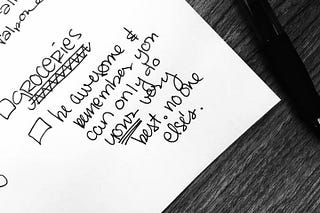 GROCERIES
be awesome &
remember you
can only do
your very
best. no one
elses.